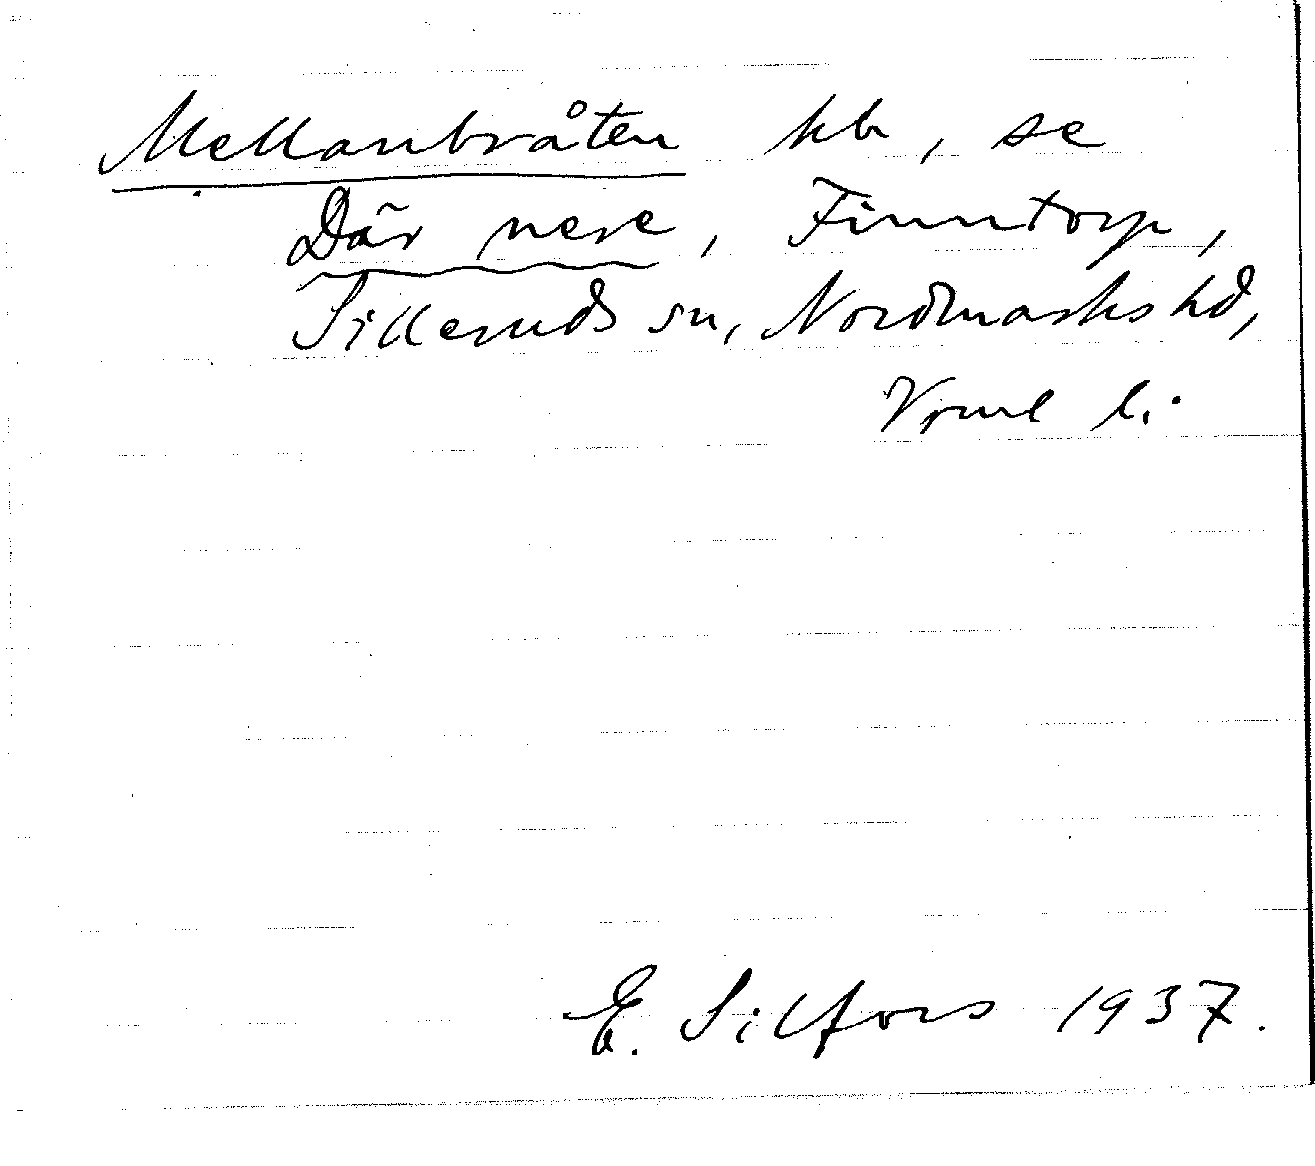 Mellanbråten hb, se
Där nere, Finntorp,
Silleruds sn, Nordmarks hd,
Vrml l.
E. Silfors 1937.